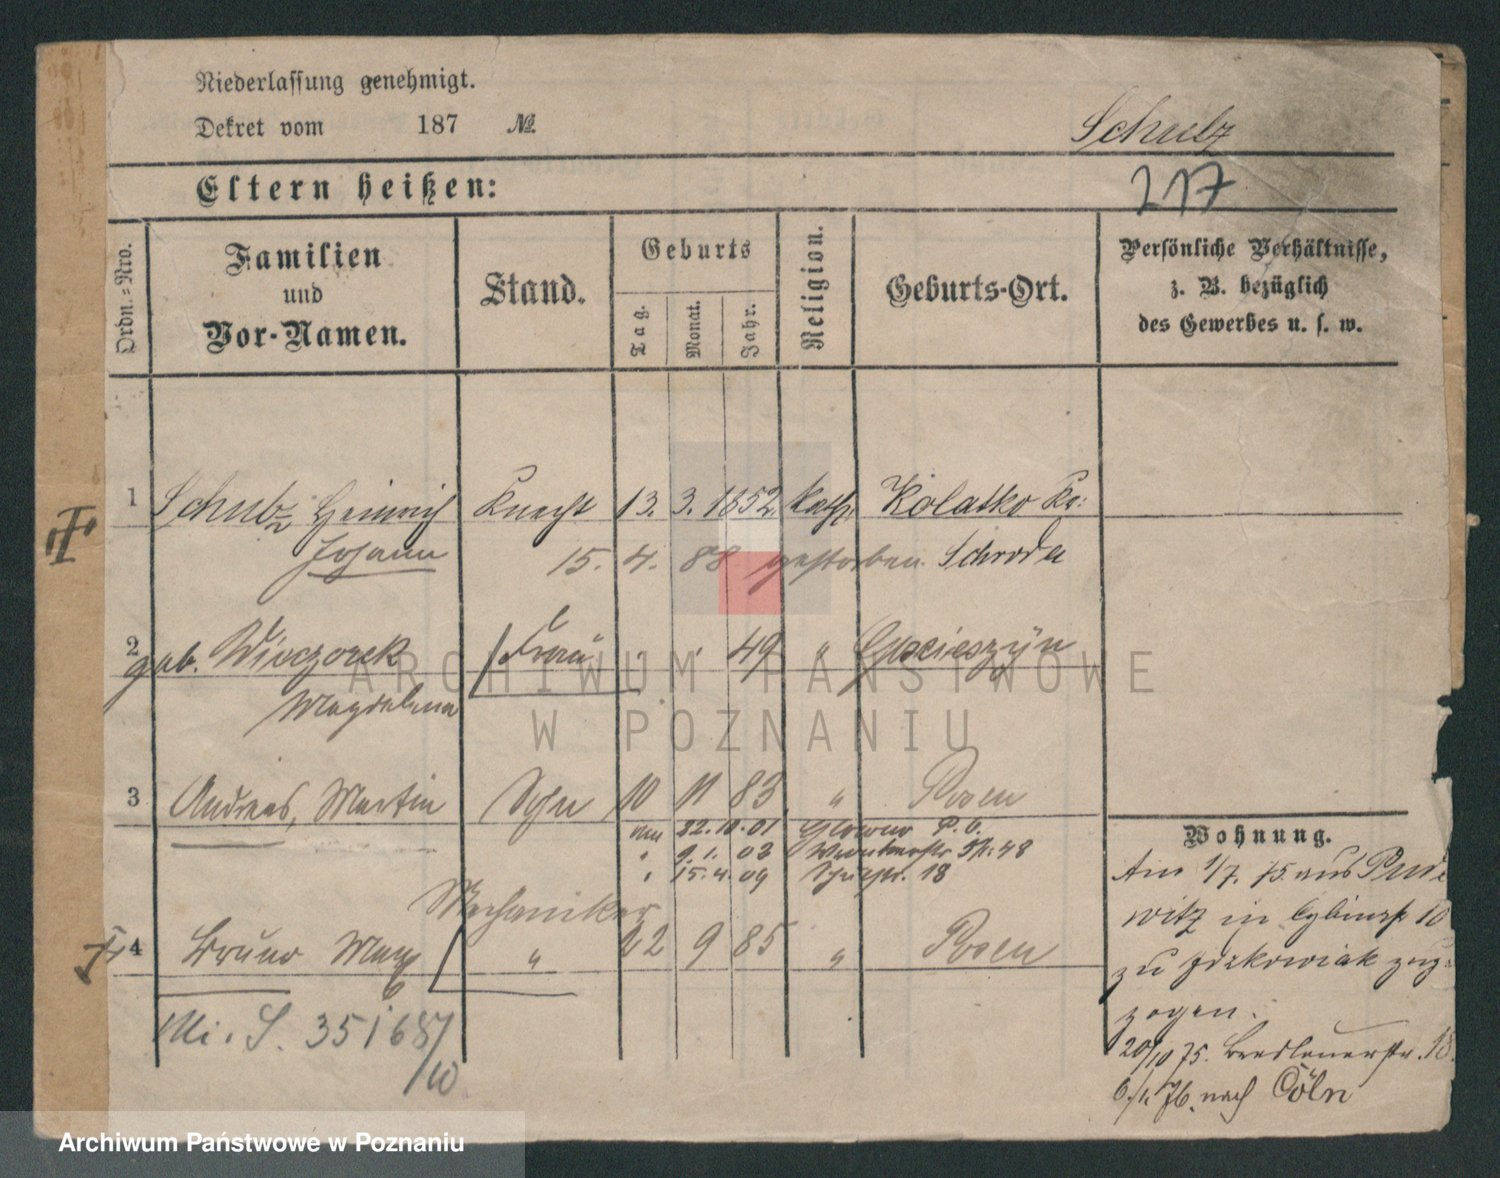 Niederlassung genehmigt.
Dekret vom 187 №
Schulz
Eltern heißen:
217
Ordn.=Nro.
Familien
und
Vor-Namen.
Stand.
Geburts
Tag.
Monat.
Jahr.
Religion.
Geburts-Ort.
Persönliche Verhältnisse,
z. B. bezüglich
des Gewerbes u. s. w.
1 Schulz Heinrich Knecht 13. 3. 1852. kath. Kolatko Kr:
Johann 15. 4. 88 gestorben Schroda
2 geb. Wioczorek Frau 49 "
Magdalena
3 Andreas, Martin Sohn 10 11 83 " Posen
am 10. 01 Glowno P. O.
" 9. 1. 03 48
" 15. 4. 09 18
Mechaniker
4 Bruno Max " 22 9 85 " Posen
Mi. S. 35168/
/10
Wohnung.
Am 1/7. 75. aus Pude
witz in 10
zu zuge
zogen.
20/10 75. Breslauerstr. 18
76. nach Cöln
ARCHIWUM PAŃSTWOWE
W POZNANIU
Archiwum Państwowe w Poznaniu